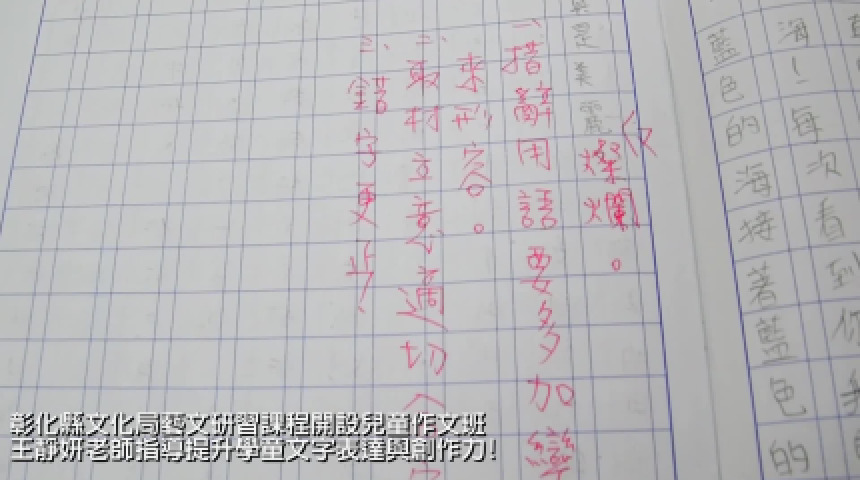 海
!
每
次
看
到
你
藍
色
的
海
接
著
藍
色
的
是美麗
燦爛。
一、措辭用語要多加變
來形容。
二、取材立意適切
三、錯字更正!
彰化縣文化局藝文研習課程開設兒童作文班
王靜妍老師指導提升學童文字表達與創作力!